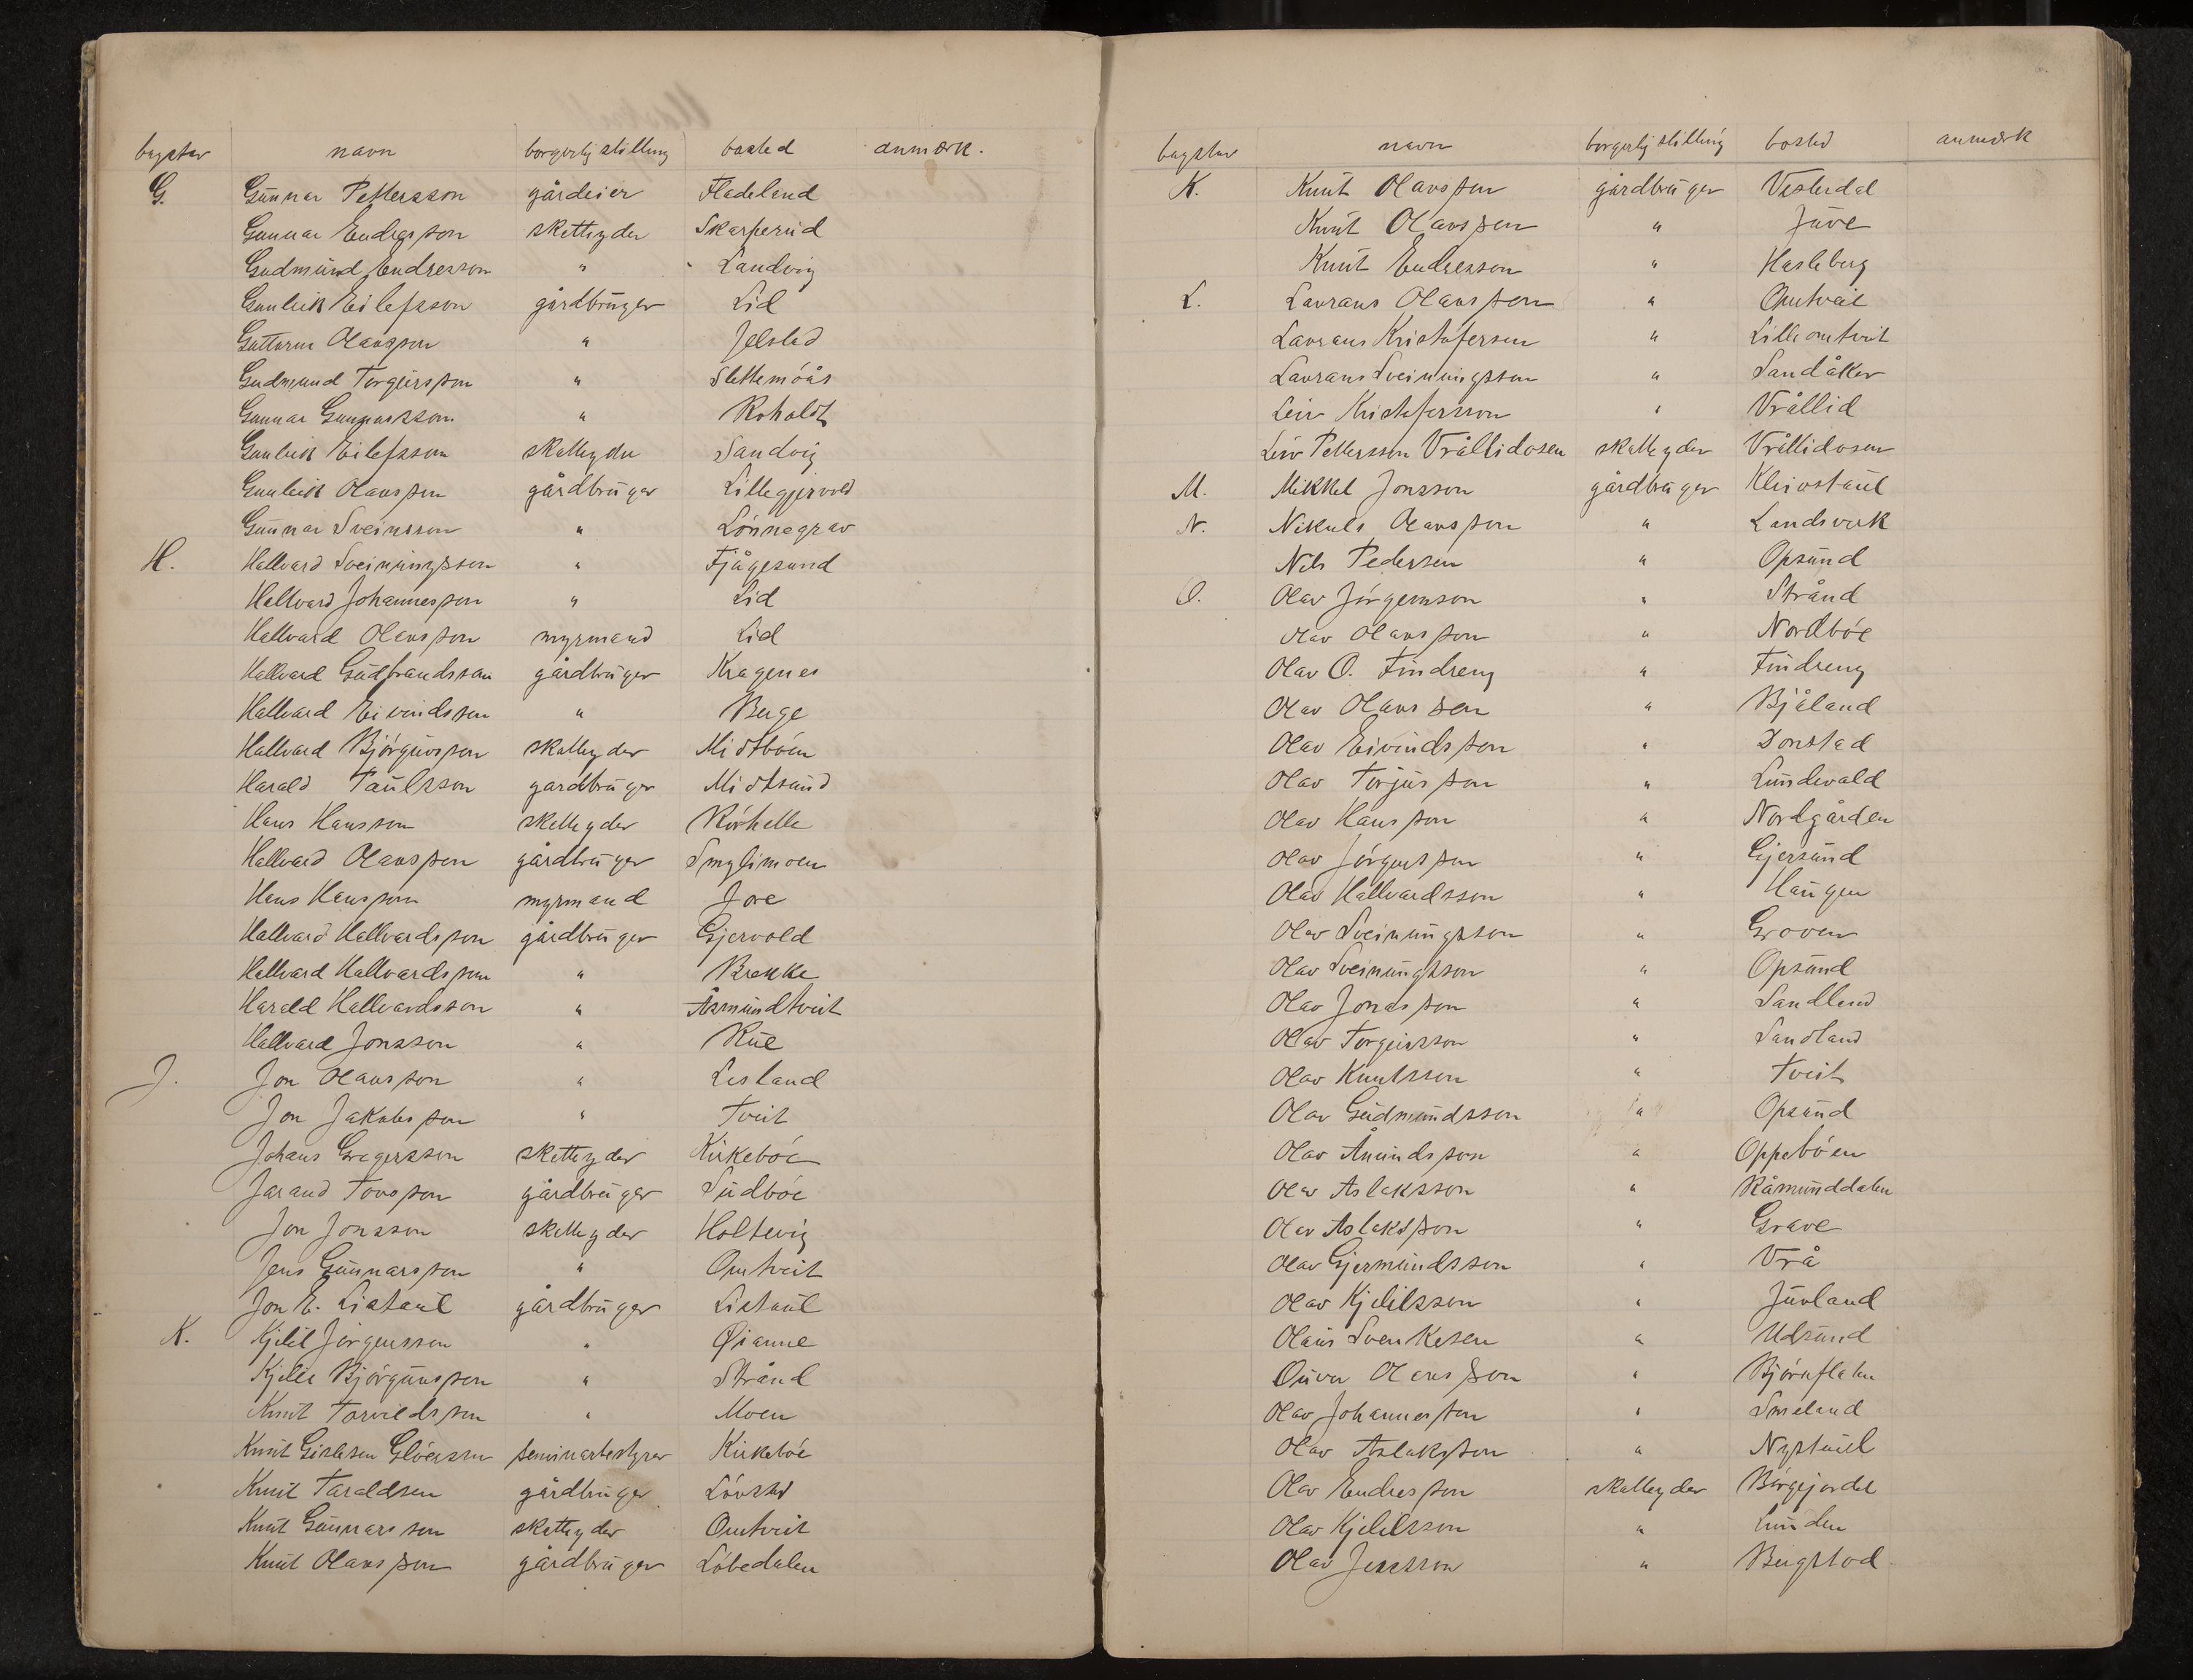 bogstav navn borgerlig stilling bosted anmærk.
G. Gunnar Pettersson gårdeier Fladeland
Gunnar Endresson skatteyder Skarperud
Gudmund Endresson " Landvig
Gunleik Eilefsson gårdbruger Lid
Guttorm Olavsson " Jelstad
Gudmund Torgeirsson " Slettemoås
Gunnar Gunnarsson " Roholdt
Gunleik Eilefsson skatteyder Sandvig
Gunleik Olavsson gårdbruger Lillegjervold
Gunnar Sveinsson " Lönnegrav
H. Hallvard Sveinungsson " Fjågesund
Hallvard Johannesson " Lid
Hallvard Olavsson myrmand Lid
Hallvard Gudbrandsson gårdbruger Kragenes
Hallvard Eivindsson " Berge
Hallvard Björgunsson skatteyder Midtböen
Harald Paulsson gardbruger Midtsund
Hans Hansson skatteyder Rörhelle
Hallvard Olavsson gårdbruger Smylimoen
Hans Hansson myrmand Jore
Hallvard Hallvardsson gårdbruger Gjervold
Hallvard Hallvardsson " Brekke
Harald Hallvardsson " Åsmundtveit
Hallvard Jonsson " Rue
J. Jon Olavsson " Lisland
Jon Jakobsson " Tveit
Johans Gregersson skatteyder Kirkeböe
Jarand Tovsson gårdbruger Sudböe
Jon Jonsson skatteyder Holtevig
Jens Gunnarsson " Omtveit
Jon E. Listaul gårdbruger Listaul
K. Kjetil Jörgensson " Øianne
Kjetil Björgunsson " Strånd
Knut Torvildsson " Moen
Knut Gislesen Glöersen seminarbestyrer Kirkeböe
Knut Taraldsen gårdbruger Lövstad
Knut Gunnarsson skatteyder Omtveit
Knut Olavsson gårdbruger Löbedalen
bogstav navn borgerlig stilling bosted anmærk
K. Knut Olavsson gårdbruger Vesterdal
Knut Olavssen " Juve
Knut Endresson " Hasleberg
L. Lavrans Olavsson " Omtveit
Lavrans Kristofersen " Lilleomtveit
Lavrans Sveinungsson " Sandåker
Leiv Kristofersson " Vrållid
Leiv Pettersson Vrållidosen skatteyder Vrållidosen
M. Mikkel Jonsson gårdbruger Kleivstaul
N. Nikuls Olavsson " Landsverk
Nils Pedersen " Opsund
O. Olav Jörgensson " Strånd
Olav Olavsson " Nordböe
Olav O. Findreng " Findreng
Olav Olavssen " Bjåland
Olav Eivindsson " Donstad
Olav Torjusson " Lundevald
Olav Hansson " Nordgården
Olav Jörgensson " Gjersund
Olav Hallvardsson " Haugen
Olav Sveinungsson " Groven
Olav Sveinungsson " Opsund
Olav Jonasson " Sandland
Olav Torgeirsson " Sandland
Olav Knutsson " Tveit
Olav Gudmundsson " Opsund
Olav Ånundsson " Oppeböen
Olav Aslaksson " Råmunddalen
Olav Aslaksson " Grave
Olav Gjermundsson " Vrå
Olav Kjetilsson " Juvland
Olaus Svenkesen " Udsund
Oliver Olavsson " Björnflaten
Olav Johannesson " Smeland
Olav Aslaksson " Nystaul
Olav Endresson skatteyder Börgejordet
Olav Kjetilsson " Lunden
Olav Jensson " Bergstad